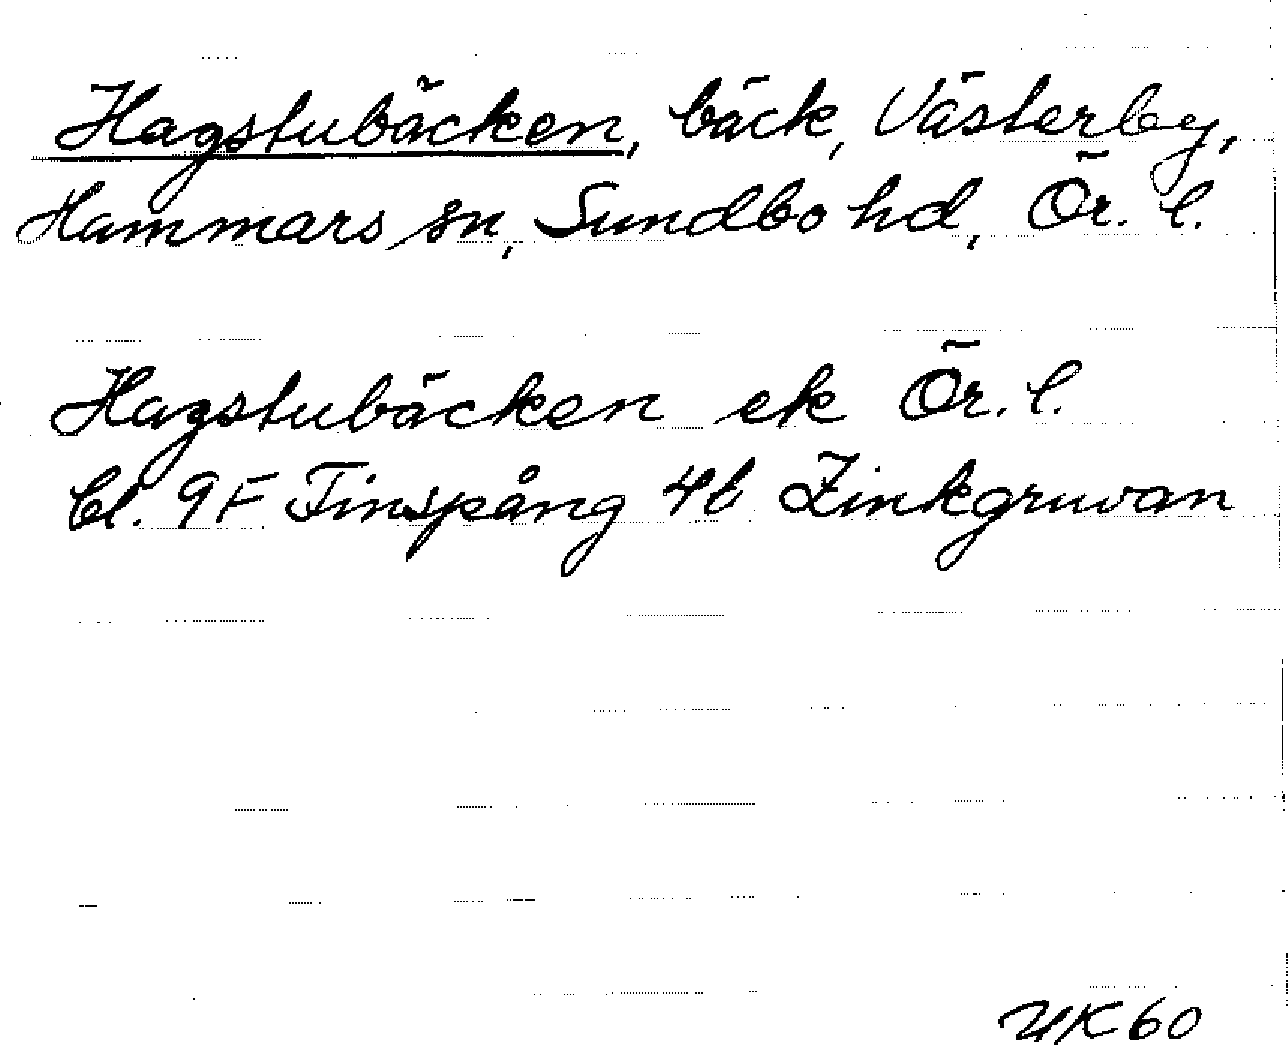 Hagstubäcken, bäck, Västerby,
Hammars sn, Sundbo hd, Ör. l.
Hagstubäcken ek Ör. l.
bl. 9F Finspång 4b Zinkgruvan
UK 60